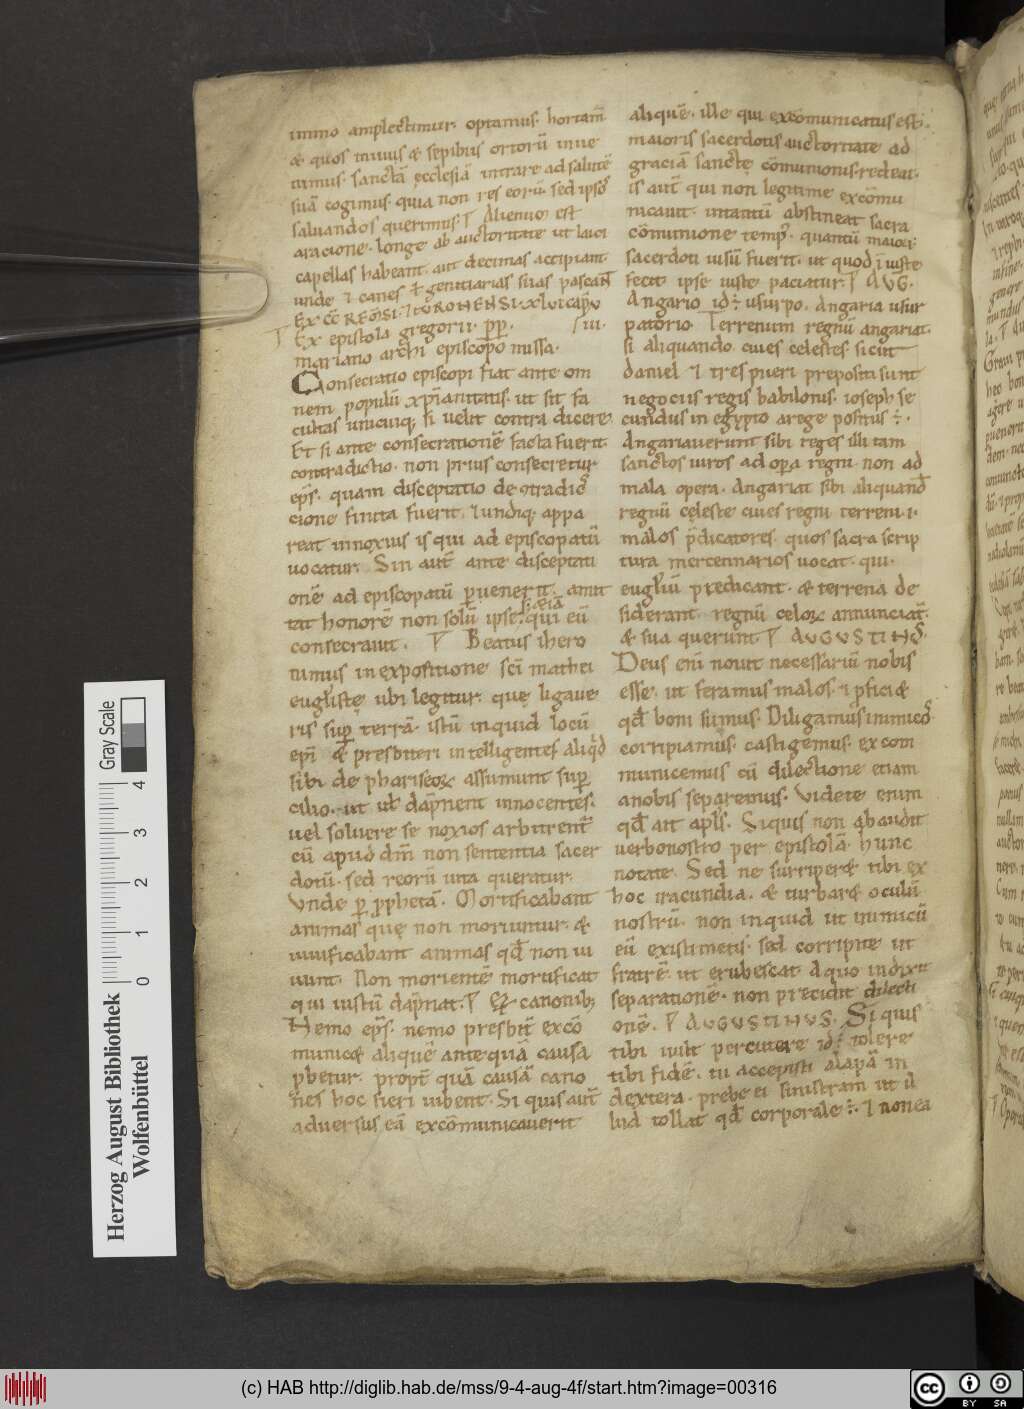 immo amplectimur. optamus. hortam̄
& quos in uuis & sepibus ortorū inue
nimus. sanctā ęcclesiā intrare ad salutē
suā cogimus. quia non res eorū. sed ipsos
saluandos querimus. Alienum est
a racione. longe ab auctoritate ut laici
capellas habeant. aut decimas accipiant.
unde & canes & genitiarias suas pascan̄t
Ex epistola gregorii. p̄p̄.
mariano archi episcopo missa.
Consecratio episcopi fiat ante om
nem populū xp̄ianitatis. ut sit fa
cultas unicuiq; si uelit contra dicere.
Et si ante consecrationē facta fuerit.
contradictio. non prius consecretur
ep̄s. quam disceptatio de ꝯtradic
cione finita fuerit. & undiq; appa
reat innoxius is qui ad episcopatū
uocatur. Sin aut̄ ante disceptati
onē ad episcopatū ꝑuenerit. amit
tat honorē non solū ipse. qui eū
consecrauit. Beatus ihero
nimus in expositione sc̄i mathei
euḡliste ubi legitur. quę ligaue
ris sup terrā. istū inquid locū
ep̄i & presbiteri intelligentes aliqd̄
sibi de phariseoꝝ assumunt sup̄
cilio. ut ul̄ dāpnent innocentes.
uel soluere se noxios arbitrent̄
cū apud dm̄ non sententia sacer
dotū. sed reorū uita queratur.
Vnde ꝑ ꝓphetā. Mortificabant
animas quę non moriuntur. &
uiuificabant animas qd̄ non ui
uunt. Non morientē mortificat
qui iustū dāpnat. Ex canonib;
Nemo ep̄s. nemo presbit̄ excō
munic& aliquē ante quā causa
ꝓbetur. propt̄ quā causā cano
nes hoc fieri iubent. Si quis aut̄
aduersus eā excōmunicauerit
aliquē. ille qui excōmunicatus est.
maioris sacerdotis auctoritate ad
graciā sanctę cōmunionis redeat.
is aut̄ qui non legitime excōmu
nicauit. in tantū abstineat sacra
cōmunione temp̄. quantū maiori
sacerdoti uisū fuerit. ut quod iniuste
fecit ipse iuste paciatur. AUG.
Angario id÷ usurpo. angaria usur
patorio. Terrenum regnū angariat.
si aliquando ciues celestes sicut
daniel & tres pueri prepositi sunt
negociis regis babilonis. ioseph se
cundus in egypto a rege positus ÷.
Angariauerunt sibi reges illi tam
sanctos uiros ad opa regni. non ad
mala opera. Angariat sibi aliquand̄
regnū cęleste ciues regni terreni. i.
malos p̄dicatores. quos sacra scrip
tura mercennarios uocat. qui.
euḡliū predicant. & terrena de
siderant. regnū celoꝝ annunciat̄.
& sua querunt. AUGUSTINUS.
Deus eni nouit necessariū nobis
esse. ut feramus malos. & ꝓfici&
qd̄ boni sumus. Diligamus inimicos
corripiamus. castigemus. excom
municemus cū dilectione etiam
a nobis separemus. Videte enim
qd̄ ait apls̄. Siquis non obaudit
uerbo nostro per epistolā. hunc
notate. Sed ne surriper& tibi ex
hoc iracundia. & turbar& oculū
nostrū. non inquid ut inimicū
eū existimetis. sed corripite ut
fratrē. ut erubescat. A quo indixit
separationē. non precidit dilecti
onē. AUGUSTINUS. Si quis
tibi uult percutere id÷ tolere
tibi fidē. tu accepisti alapā in
dextera. prebe ei sinistram ut il
lud tollat qd̄ corporale ÷. & non ea
Herzog August Bibliothek
Wolfenbüttel
0 1 2 3 4
Gray Scale
(c) HAB http://diglib.hab.de/mss/9-4-aug-4f/start.htm?image=00316
cc BY SA